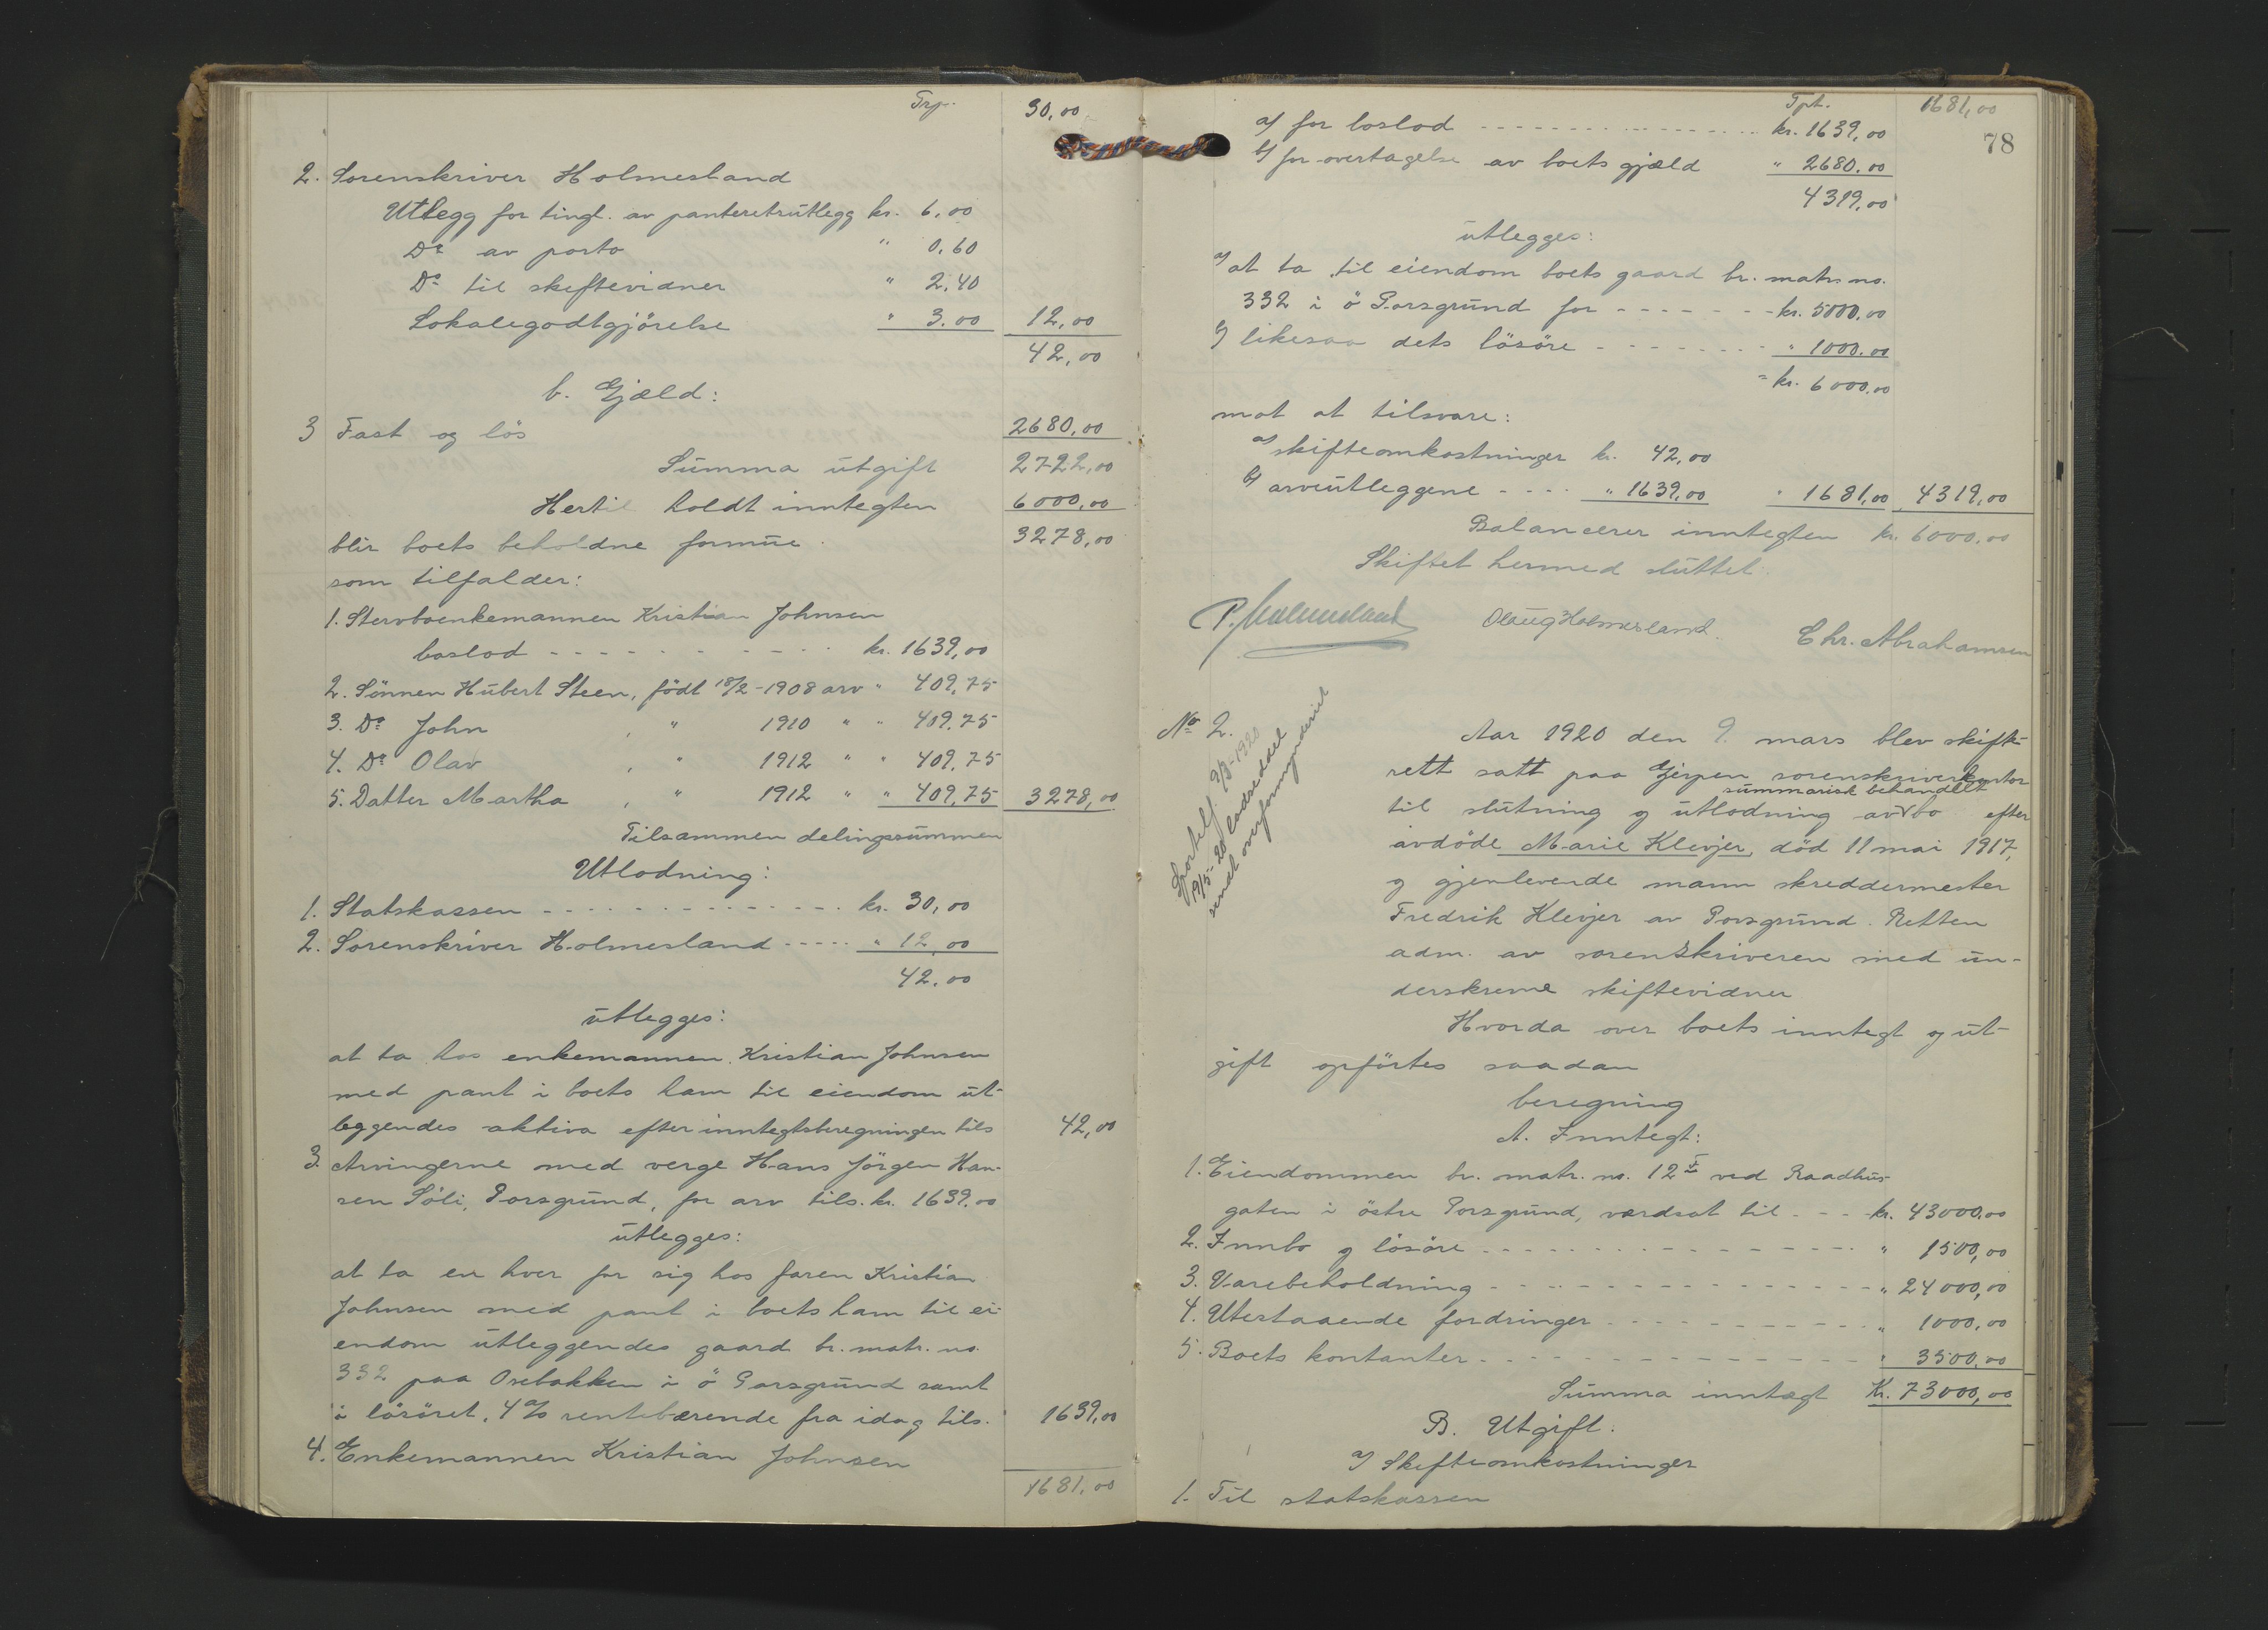 Trp. 30,00
2. Sorenskriver Holmesland
Utlegg for tingl. av panteretsutlegg kr. 6,00
Do av porto " 0.60
Do til skiftevidner " 2.40
Lokalegodtgjörelse " 3.00 12,00
42,00
b. Gjæld:
3 Fast og lös 2680,00
Summa utgift 2722,00
Hertil holdt inntegten 6000,00
blir boets beholdne formue. 3278,00
som tilfalder:
1. Stervboenkemannen Kristian Johnsen
boslod - - - - - - - - - kr. 1639,00
2. Sönnen Hubert Steen, födt 18/2-1908 arv " 409,75
3. Do John , " 1910 " " 409.75
4. Do Olav , " 1912 " " 409,75
5. Datter Martha , " 1912 " " 409,75 3278,00
Tilsammen delingssummen
Utlodning:
1. Statskassen - - - - - - - - - - kr. 30,00
2. Sorenskriver Holmesland ----- " 12,00
42.00
utlegges:
at ta hos enkemannen Kristian Johnsen
med pant i boets ham til eiendom ut-
leggendes aktiva efter inntegtsberegningen tils 42,00
3. Arvingerne med verge Hans Jörgen Han-
sen Söli, Porsgrund, for arv tils. kr. 1639.00
utlegges:
at ta en hver for sig hos faren Kristian
Johnsen med pant i boets ham til ei-
endom utleggendes gaard br. matr. no.
332 paa Osebakken i ö Porsgrund samt
i lösöret, 4 % rentebærende fra idag tils. 1639,00
4. Enkemannen Kristian Johnsen
1681,00
Tpt. 1681,00
78
a) for boslod - - - - - - - - - - - - kr. 1639,00
b) for overtagelse av boets gjæld " 2680.00
4319,00
utlegges:
a) at ta til eiendom boets gaard br. matr. no.
332 i ö Porsgrund for - - - - - - - kr. 5000.00
b) likesaa dets lösöre - - - - - - - - " 1000.00
= kr. 6000.00
mot at tilsvare:
a) skifteomkostninger kr. 42,00
b) arveutleggene - - - - " 1639,00 " 1681,00 4319,00
Balancerer inntegten kr. 6000.00
Skiftet hermed sluttet.
P. Holmesland Olaug Holmesland. Chr. Abrahamsen
No 2.
9/3-1920
19/5-20 lodseddel
sendt overformynderiet
Aar 1920 den 9 mars blev skifte-
rett satt paa Gjerpen sorenskriverkontor
summarisk behandlet
til slutning og utlodning av bo efter
avdöde Marie Klevjer, död 11 mai 1917,
og gjenlevende mann skreddermester
Fredrik Klevjer av Porsgrund. Retten
adm. av sorenskriveren med un-
derskrevne skiftevidner
Hvorda over boets inntegt og ut-
gift opförtes saadan
beregning
A. Inntegt:
1. Eiendommen br. matr. no. 12 ved Raadhus-
gaten i östre Porsgrund, værdsat til - - - kr. 43000.00
2. Innbo og lösöre - - - - - - - - - - - - " 1500,00
3. Varebeholdning - - - - - - - - - - - - " 24000,00
4. Utestaaende fordringer - - - - - - - - " 1000.00
5. Boets kontanter - - - - - - - - - - - - " 3500,00
Summa inntægt Kr. 73000,00
B. Utgift.
a) Skifteomkostninger
1. Til statskassen